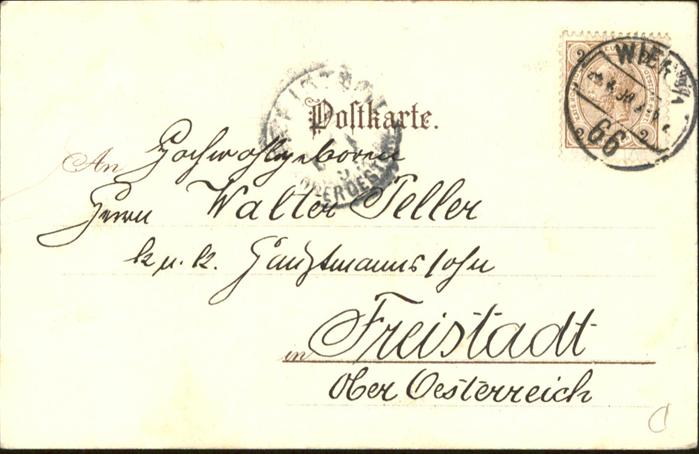 Postkarte.
WIEN
66
2 2
An Hochwohlgeboren
Herrn Walter Teller
k. u. k. Hauptmannssohn
in Freistadt
Ober Oesterreich